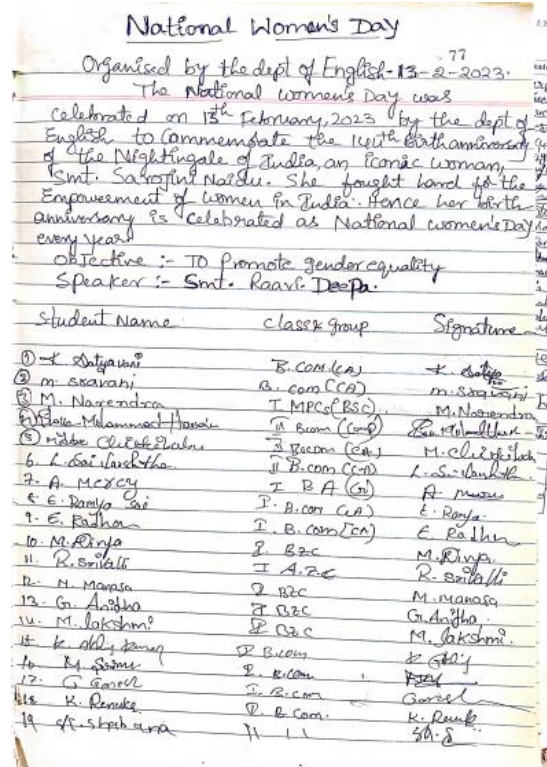 National Women's Day
77
Organised by the dept of English-13-2-2023.
The National women's Day was
celebrated on 13th February, 2023 by the dept of
English to Commemorate the 144th Birth anniversary
of the Nightingale of India, an iconic woman,
Smt. Sarojini Naidu. She fought hard for the
Empowerment of women in India. Hence her birth
anniversary is celebrated as National women's Day
every year.
Objective :- To Promote gender equality
Speaker :- Smt. Raavi. Deepa.
Student Name Class & group Signature
① K. Satyavani B.COM (CA) K. Satya
② M. Sravani B. Com (CA) M. Sravani
③ M. Narendra I MPCs (BSC) M. Narendra
④ Mohammad II Bcom
⑤ II Bocom (CA)
6. L. Sai II B.com (CA) L. Sai
7. A Mercy I BA A. Mercy
8. E. Ramya Sai I. B. Com (CA) E. Ramya.
9. E. Radha I. B. Com [CA] E Radha
10. M. Divya I. BZC M. Divya.
11. R. Srivalli I A.Z.C R. Srivalli
12. M. Manasa I BZC M. Manasa
13. G. Anitha I BZC G. Anitha.
14. M. lakshmi I BZC M. lakshmi.
15 K Kumar B.com K
16 M I. B.Com
17. G Ganesh I. B.Com Ganesh
18 K. Renuka I. B. Com. K. Renuk
19 Sk. Shabana 11 11 Sk. S